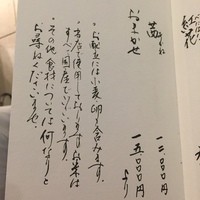 紅花
茜 一二、〇〇〇円
おまかせ 一五、〇〇〇円より
・お献立には小麦、卵を含みます。
・当店で使用しておりますお米は
すべて国産でございます。
・その他食材については何なりと
お尋ねくださいませ。